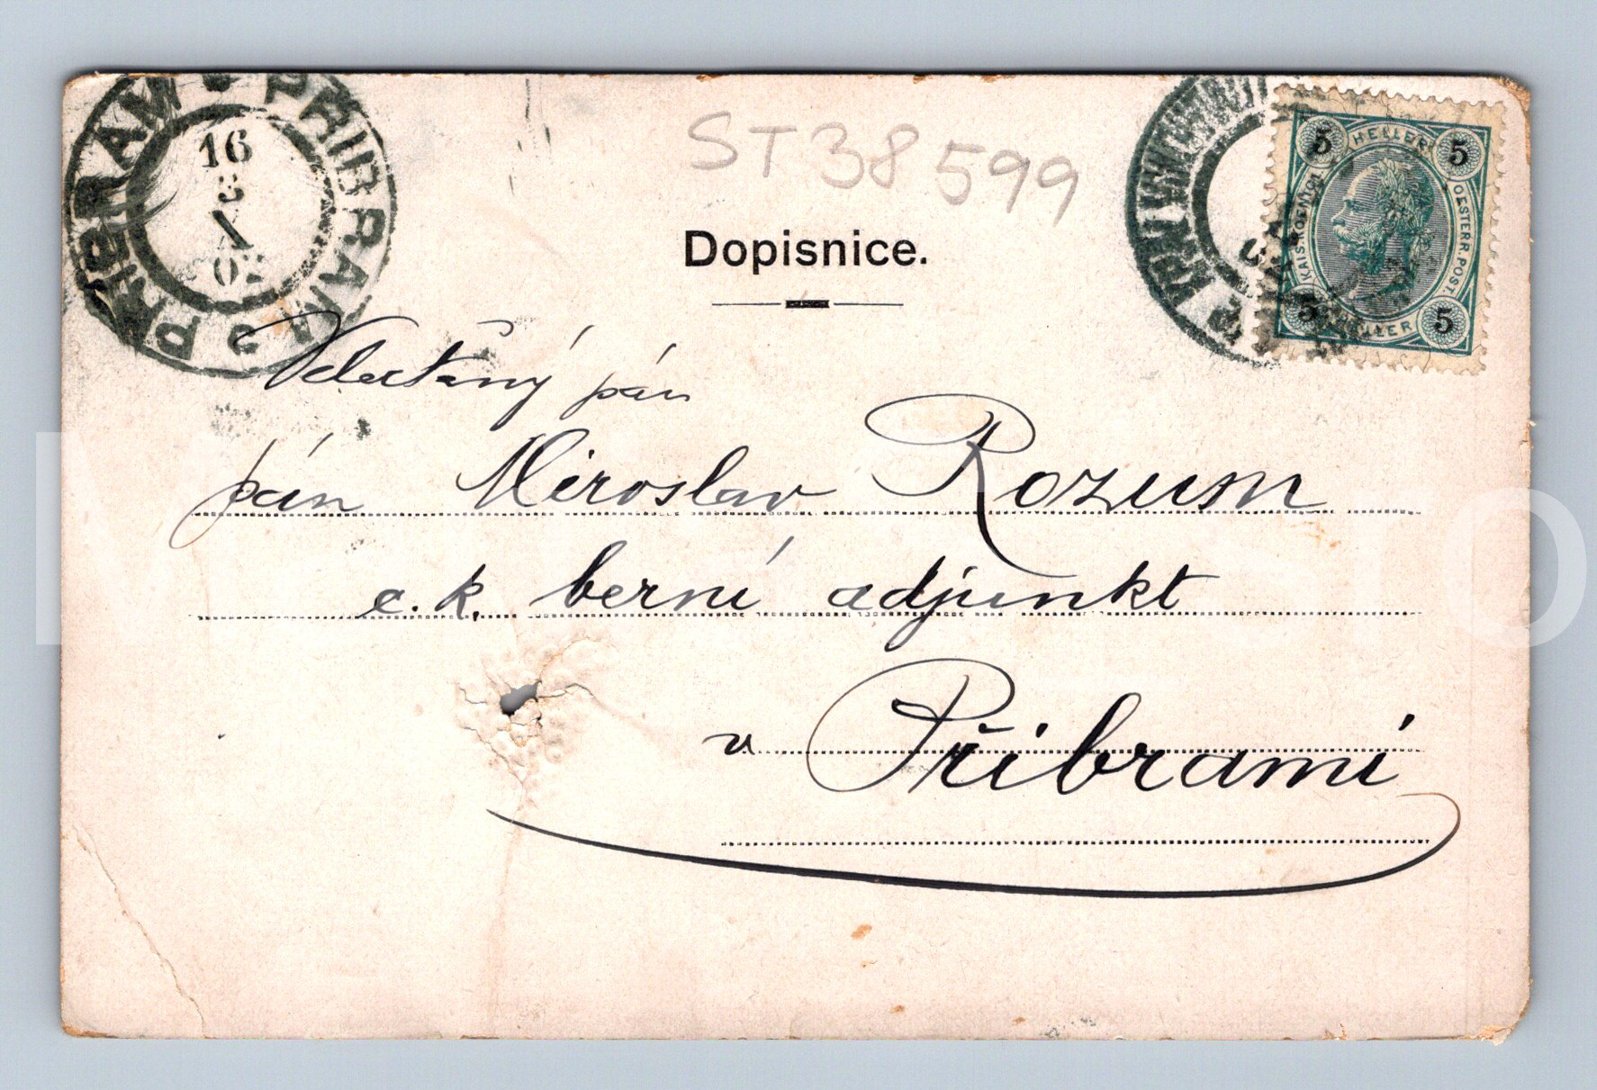 PŘIBRAM PŘIBRAM
16
3
ST38599
5 HELLER 5
KAIS. KOENIGL. OESTERR. POST
5 HELLER 5
Dopisnice.
Velectěný pán
pán Miroslav Rozum
c. k. berní adjunkt
v Přibrami